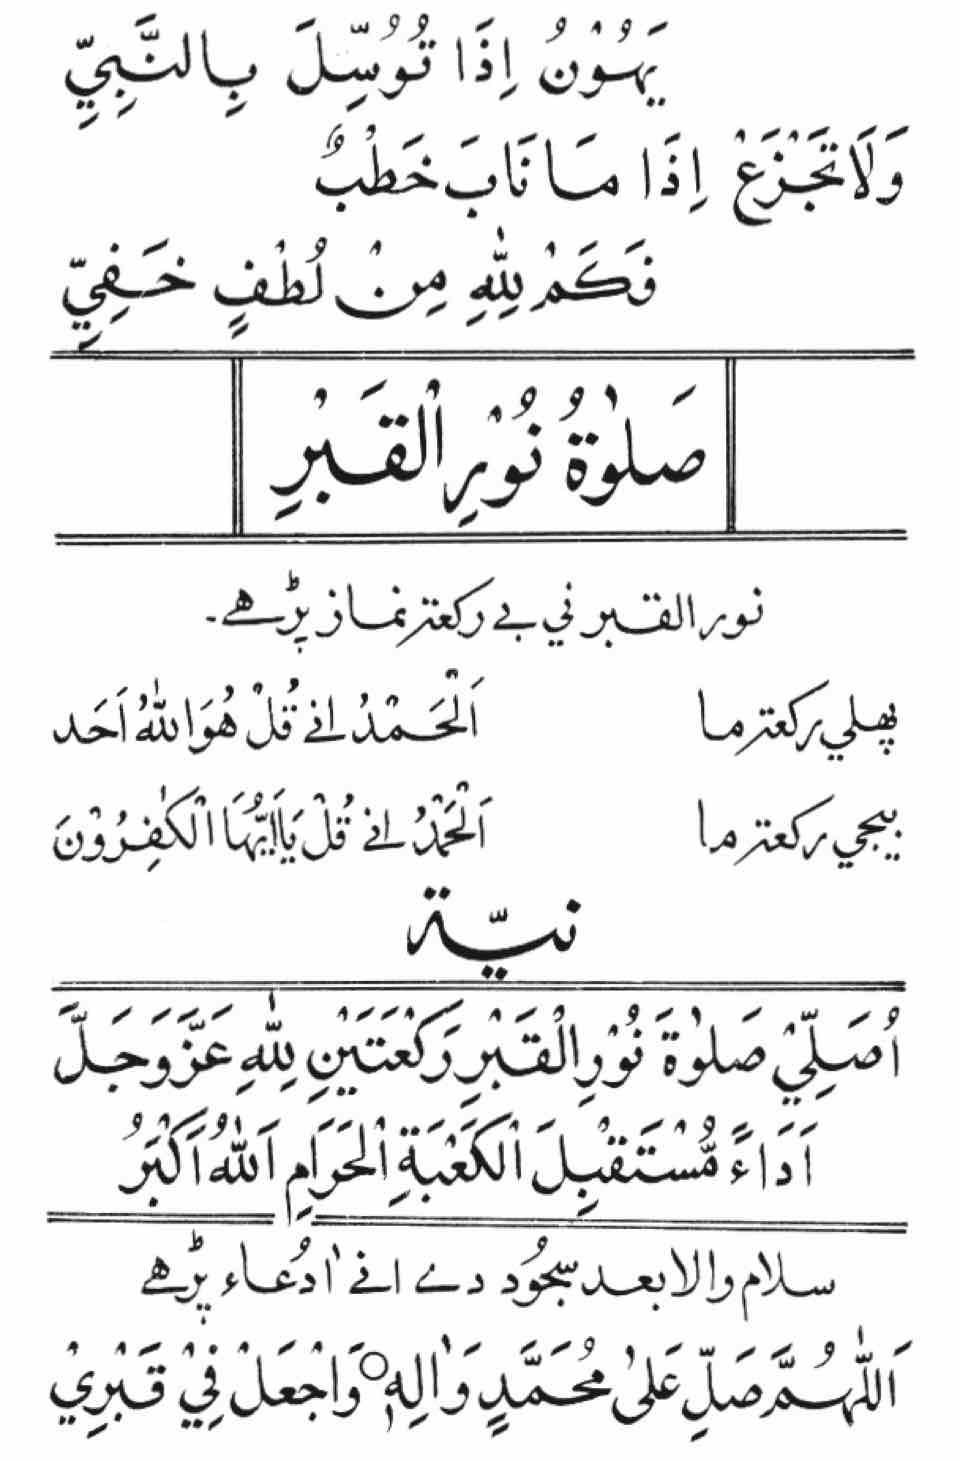 يَهُوْنُ اِذَا تُوُسِّلَ بِالنَّبِيِّ
وَلَا تَجْزَعْ اِذَا مَا نَابَ خَطْبٌ
فَكَمْ لِلّٰهِ مِنْ لُطْفٍ خَفِيِّ
صَلٰوةُ نُوْرِ الْقَبْرِ
نور القبر ني بے ركعتر نماز پڑهے۔
پهلي ركعتر ما اَلْحَمْدُ انے قُلْ هُوَ اللّٰهُ اَحَد
بيجي ركعتر ما اَلْحَمْدُ انے قُلْ يَا اَيُّهَا الْكٰفِرُوْنَ
نيّة
اُصَلِّيْ صَلٰوةَ نُوْرِ الْقَبْرِ رَكْعَتَيْنِ لِلّٰهِ عَزَّ وَجَلَّ
اَدَاءً مُّسْتَقْبِلَ الْكَعْبَةِ الْحَرَامِ اَللّٰهُ اَكْبَرُ
سلام والا بعد سجُود دے انے اٰ دُعاء پڑهے
اَللّٰهُمَّ صَلِّ عَلىٰ مُحَمَّدٍ وَاٰلِهٖ ○ وَاجْعَلْ فِيْ قَبْرِيْ